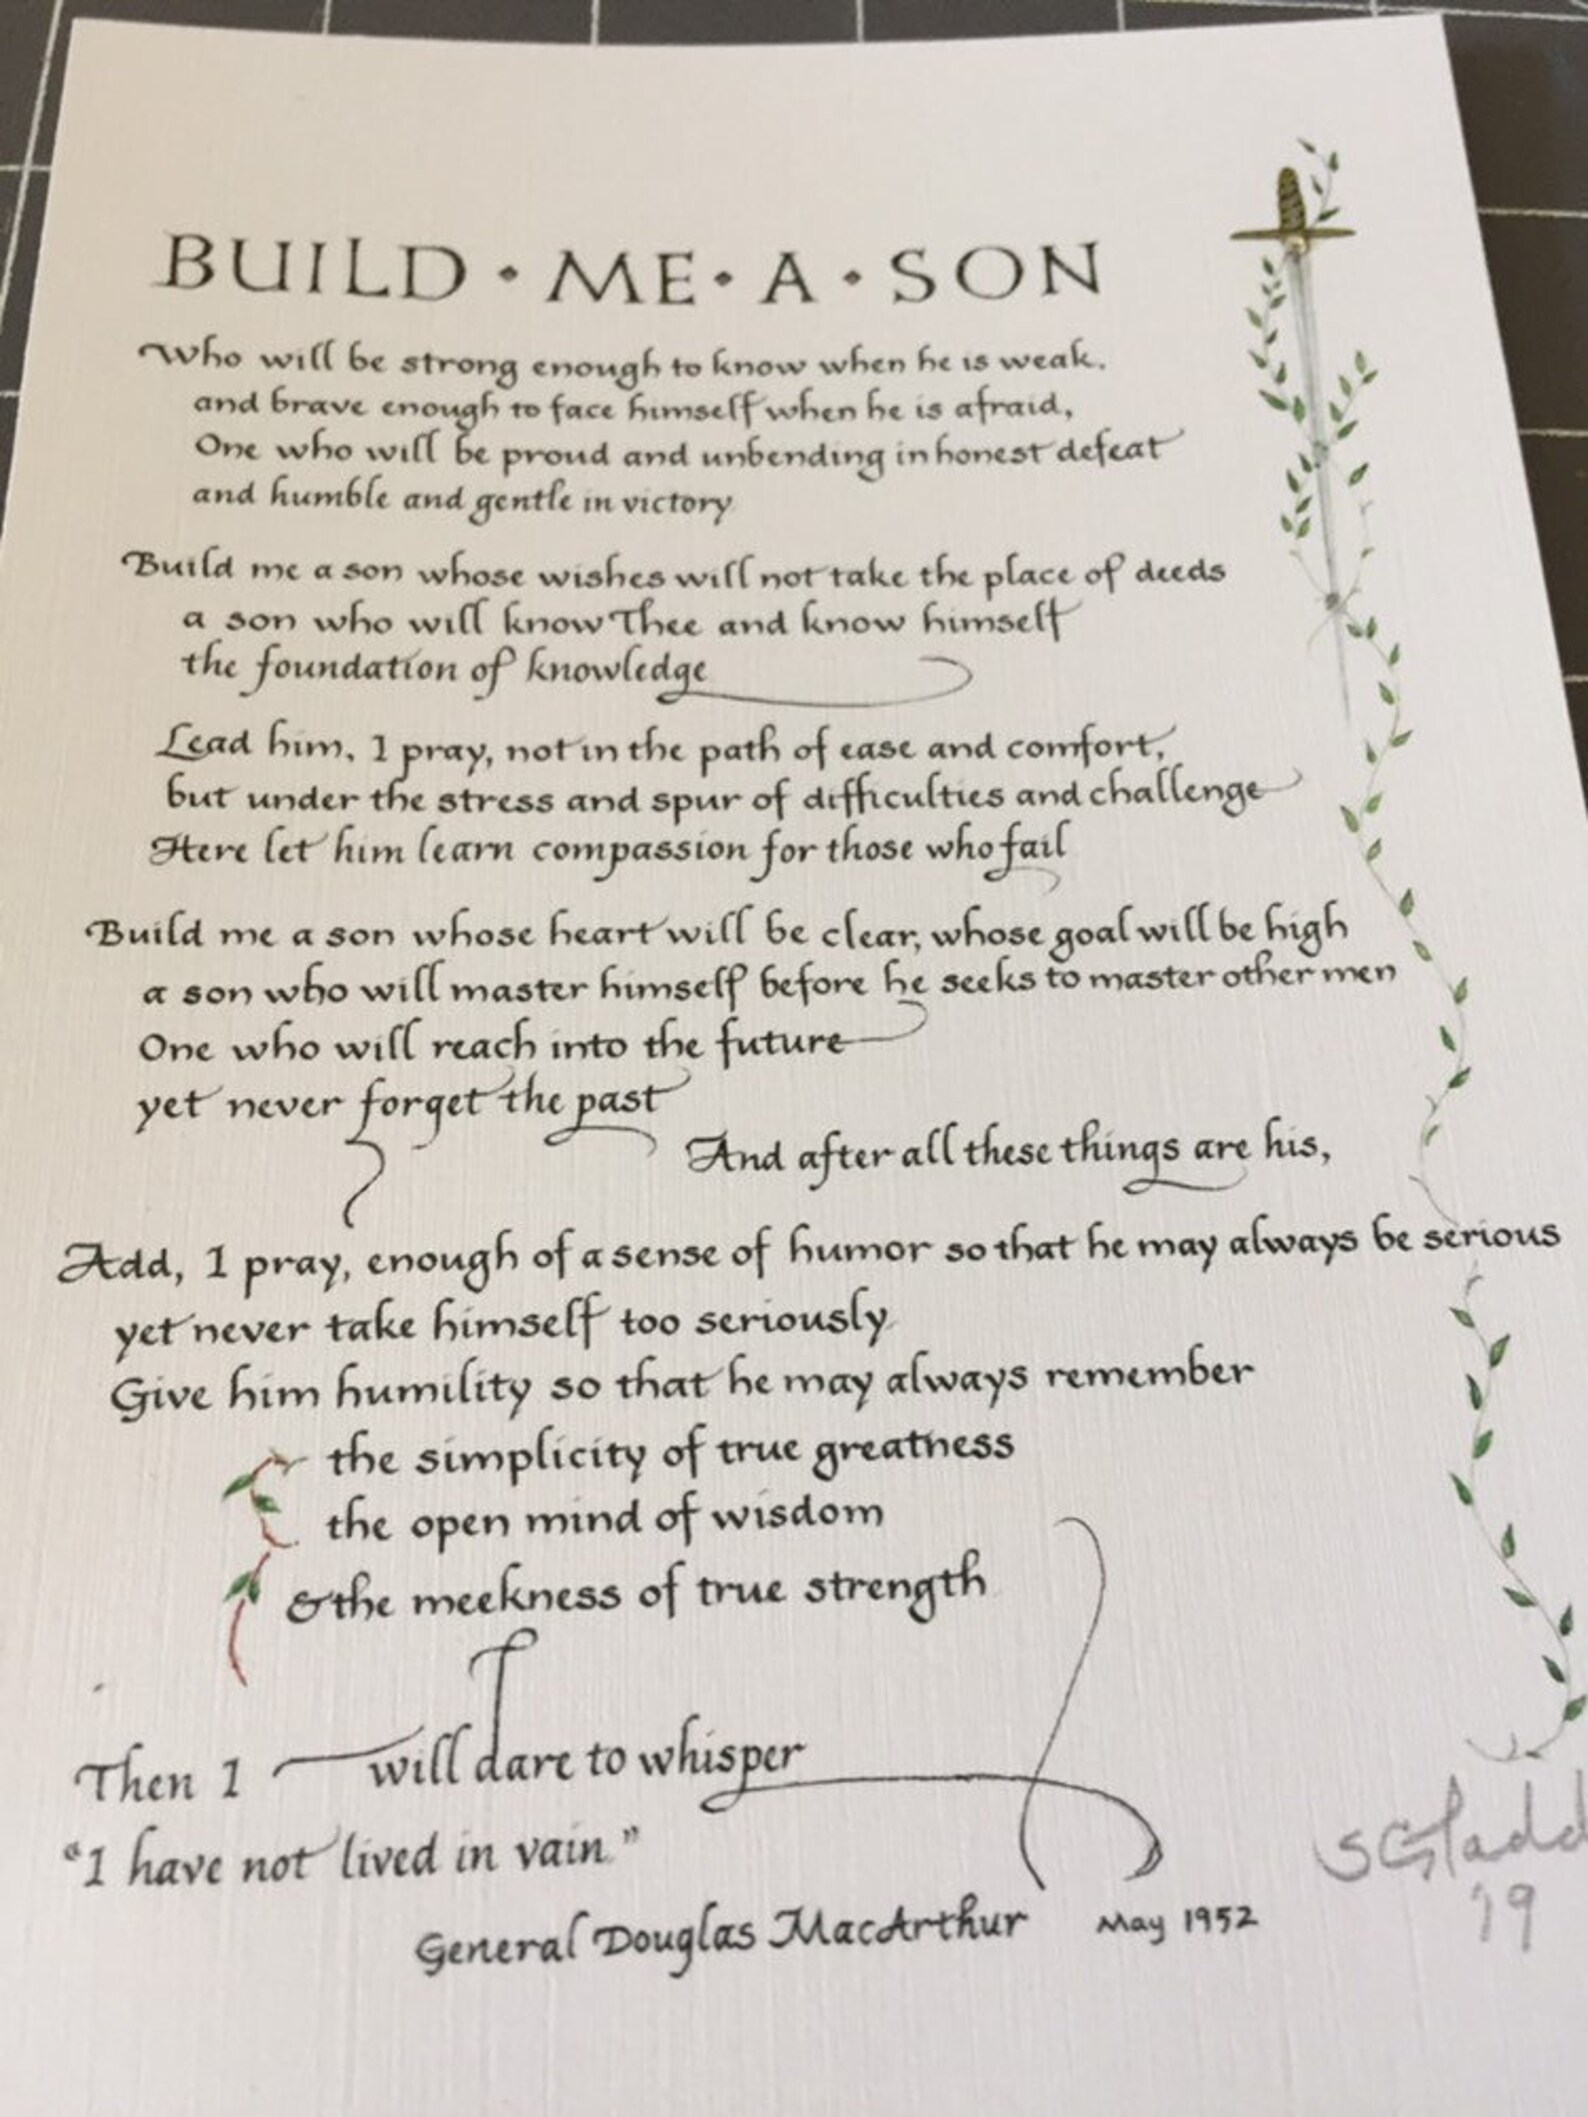 BUILD • ME • A • SON
Who will be strong enough to know when he is weak.
and brave enough to face himself when he is afraid,
One who will be proud and unbending in honest defeat
and humble and gentle in victory
Build me a son whose wishes will not take the place of deeds
a son who will know Thee and know himself
the foundation of knowledge
Lead him, I pray, not in the path of ease and comfort,
but under the stress and spur of difficulties and challenge
Here let him learn compassion for those who fail
Build me a son whose heart will be clear, whose goal will be high
a son who will master himself before he seeks to master other men
One who will reach into the future
yet never forget the past
And after all these things are his,
Add, I pray, enough of a sense of humor so that he may always be serious
yet never take himself too seriously
Give him humility so that he may always remember
the simplicity of true greatness
the open mind of wisdom
& the meekness of true strength
Then I will dare to whisper
"I have not lived in vain."
General Douglas MacArthur May 1952
SGladd
'19